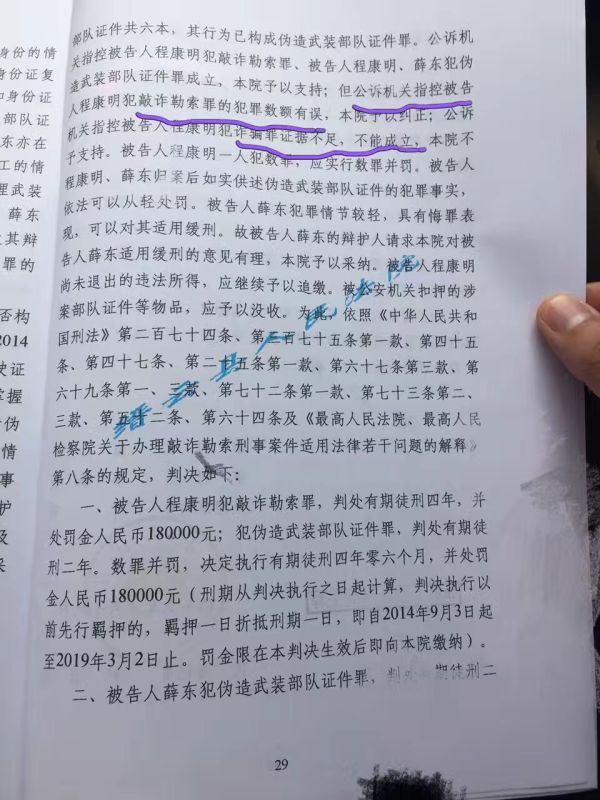 身份的情
身份证复
和身份证
部队证
东亦在
工的情
造武装
薛东
立其辩
罪的
否构
2014
驶证
掌握
伪
情
事
护
采
部队证件共六本，其行为已构成伪造武装部队证件罪。公诉机
关指控被告人程康明犯敲诈勒索罪、被告人程康明、薛东犯伪
造武装部队证件罪成立，本院予以支持；但公诉机关指控被告
人程康明犯敲诈勒索罪的犯罪数额有误，本院予以纠正；公诉
机关指控被告人程康明犯诈骗罪证据不足，不能成立，本院不
予支持。被告人程康明一人犯数罪，应实行数罪并罚。被告人
程康明、薛东归案后如实供述伪造武装部队证件的犯罪事实，
依法可以从轻处罚。被告人薛东犯罪情节较轻，具有悔罪表
现，可以对其适用缓刑。故被告人薛东的辩护人请求本院对被
告人薛东适用缓刑的意见有理，本院予以采纳。被告人程康明
尚未退出的违法所得，应继续予以追缴。被公安机关扣押的涉
案部队证件等物品，应予以没收。为此，依照《中华人民共和
国刑法》第二百七十四条、第二百七十五条第一款、第四十五
条、第四十七条、第二十五条第一款、第六十七条第三款、第
六十九条第一、三款、第七十二条第一款、第七十三条第二、
三款、第五十二条、第六十四条及《最高人民法院、最高人民
检察院关于办理敲诈勒索刑事案件适用法律若干问题的解释》
第八条的规定，判决如下：
一、被告人程康明犯敲诈勒索罪，判处有期徒刑四年，并
处罚金人民币180000元；犯伪造武装部队证件罪，判处有期徒
刑二年。数罪并罚，决定执行有期徒刑四年零六个月，并处罚
金人民币180000元（刑期从判决执行之日起计算，判决执行以
前先行羁押的，羁押一日折抵刑期一日，即自2014年9月3日起
至2019年3月2日止。罚金限在本判决生效后即向本院缴纳）。
二、被告人薛东犯伪造武装部队证件罪，判处有期徒刑二
29
县人民法院